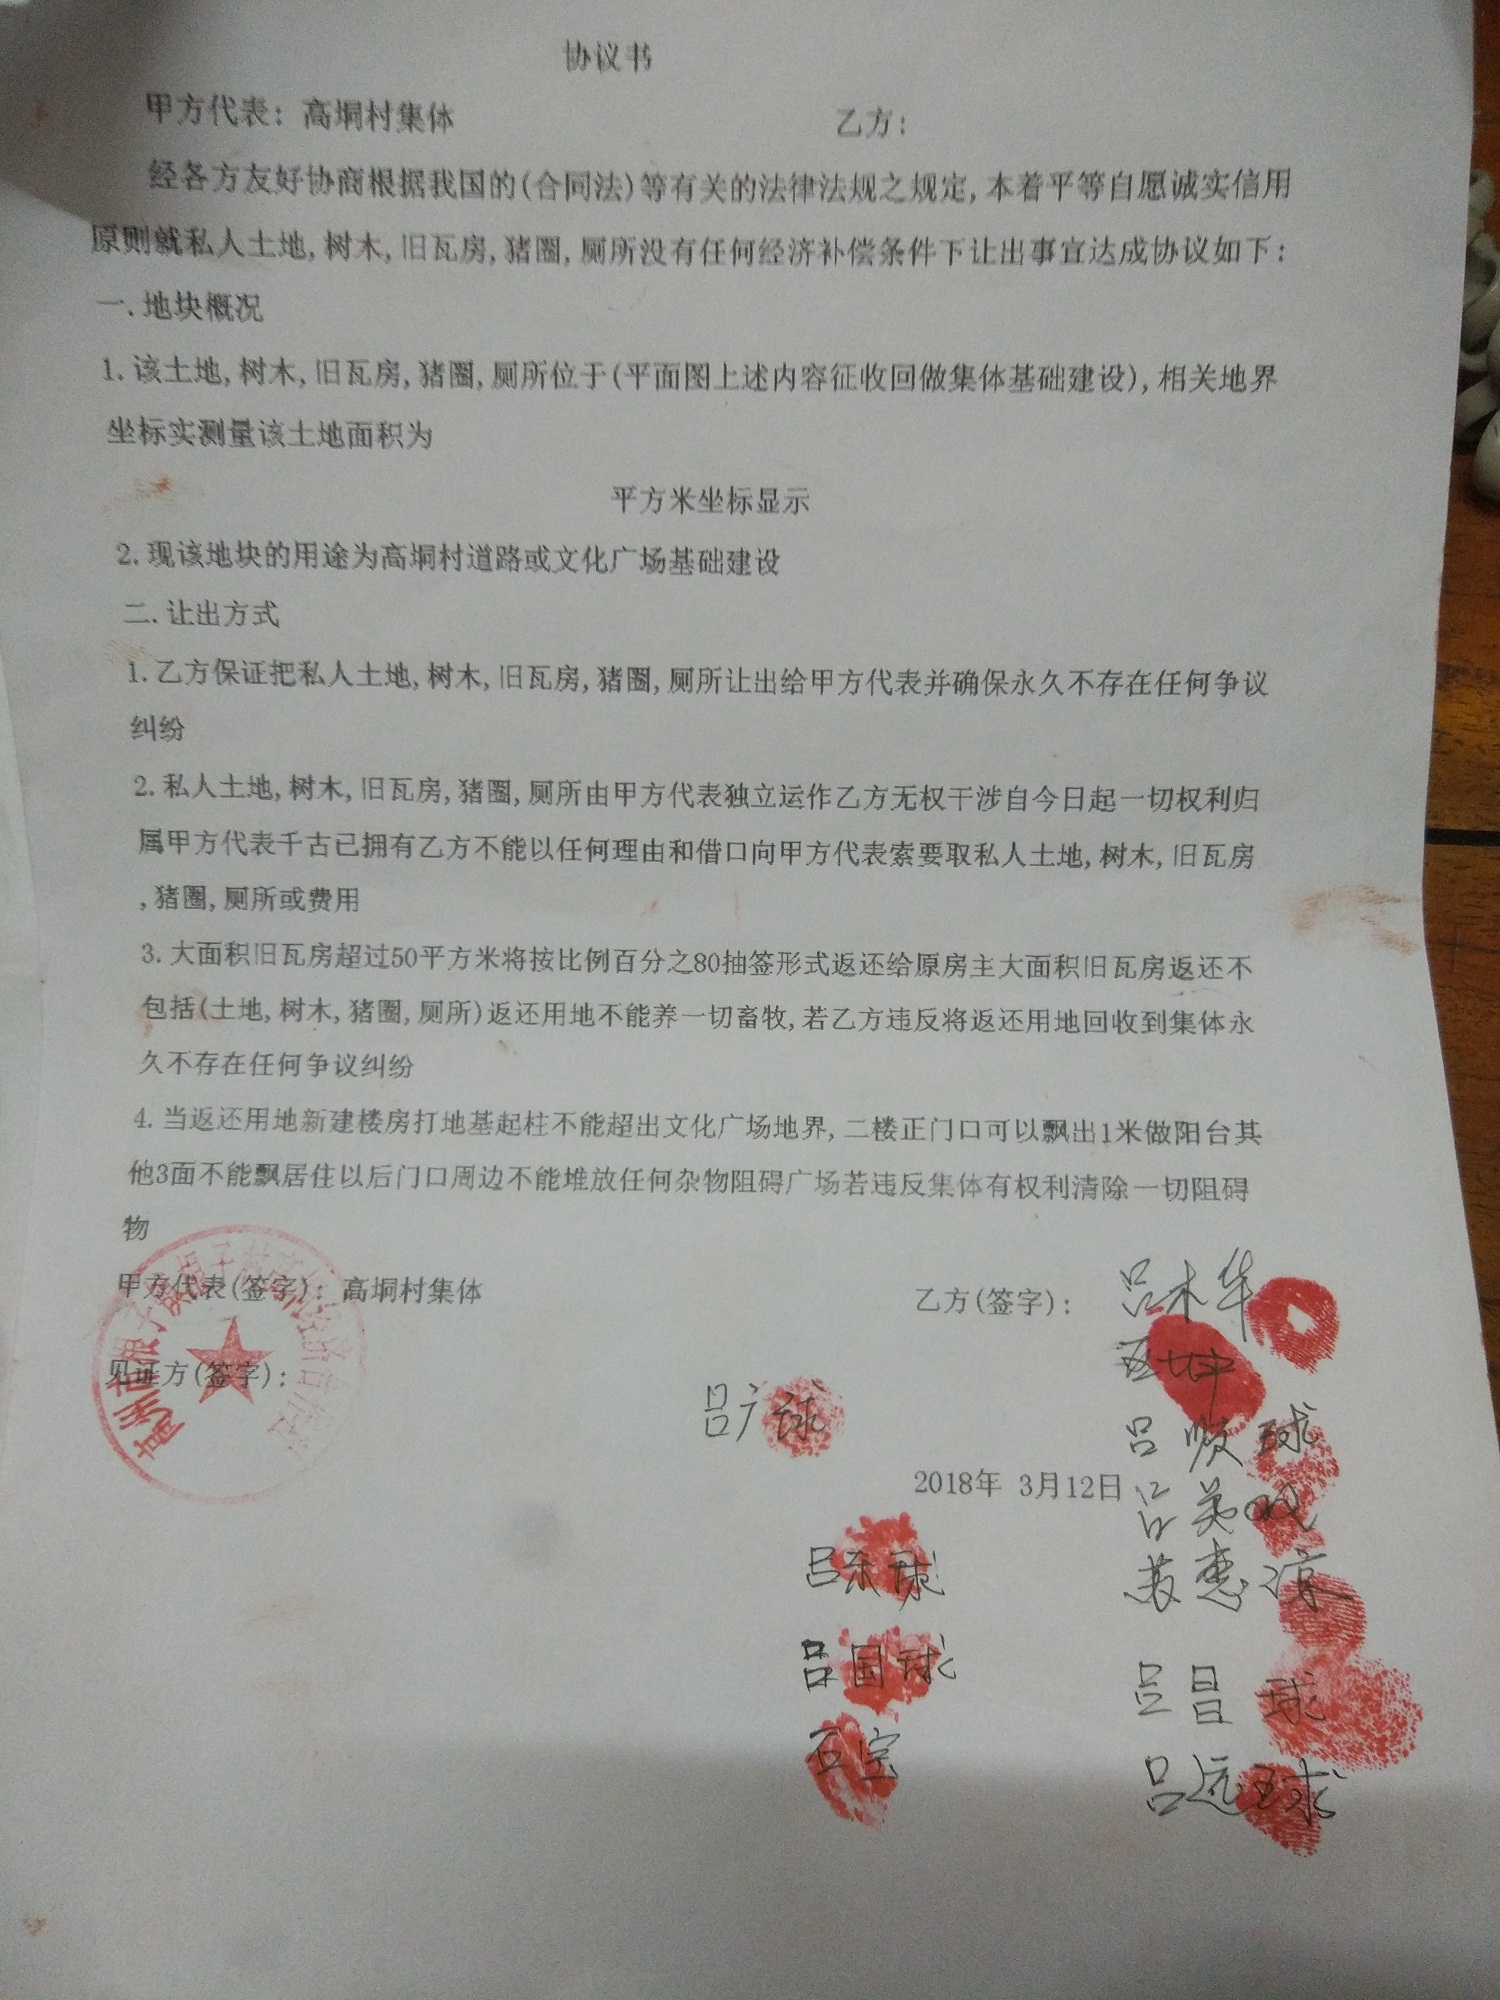 协议书
甲方代表: 高垌村集体 乙方:
经各方友好协商根据我国的(合同法)等有关的法律法规之规定,本着平等自愿诚实信用
原则就私人土地,树木,旧瓦房,猪圈,厕所没有任何经济补偿条件下让出事宜达成协议如下:
一.地块概况
1.该土地,树木,旧瓦房,猪圈,厕所位于(平面图上述内容征收回做集体基础建设),相关地界
坐标实测量该土地面积为
平方米坐标显示
2.现该地块的用途为高垌村道路或文化广场基础建设
二.让出方式
1.乙方保证把私人土地,树木,旧瓦房,猪圈,厕所让出给甲方代表并确保永久不存在任何争议
纠纷
2.私人土地,树木,旧瓦房,猪圈,厕所由甲方代表独立运作乙方无权干涉自今日起一切权利归
属甲方代表千古已拥有乙方不能以任何理由和借口向甲方代表索要取私人土地,树木,旧瓦房
,猪圈,厕所或费用
3.大面积旧瓦房超过50平方米将按比例百分之80抽签形式返还给原房主大面积旧瓦房返还不
包括(土地,树木,猪圈,厕所)返还用地不能养一切畜牧,若乙方违反将返还用地回收到集体永
久不存在任何争议纠纷
4.当返还用地新建楼房打地基起柱不能超出文化广场地界,二楼正门口可以飘出1米做阳台其
他3面不能飘居住以后门口周边不能堆放任何杂物阻碍广场若违反集体有权利清除一切阻碍
物
甲方代表(签字): 高垌村集体 乙方(签字): 吕木华
见证方(签字):
吕广球
吕 球
2018年 3月12日
吕英
吕东球
惠
吕国球
吕昌球
石宝
吕远球